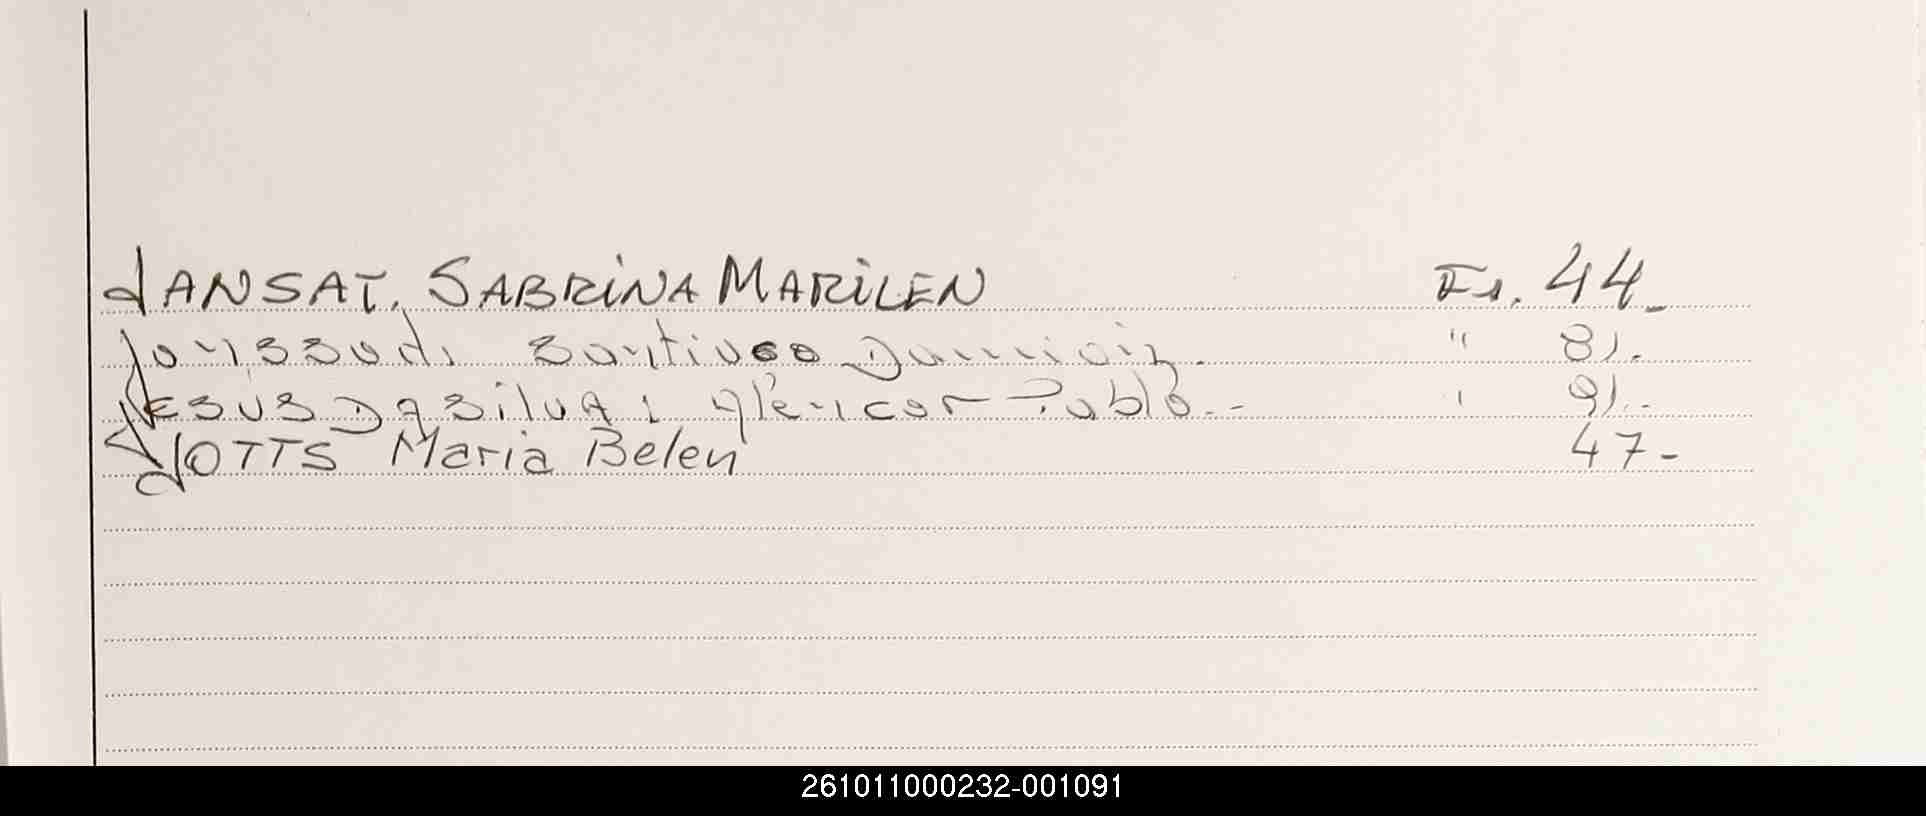 JANSAT, SABRINA MARILEN Fs. 44_
Joussud, Santiago Damian. " 81.
JESUS Da silva, Pablo.- ' 91.-
JOTTS Maria Belen 47-
261011000232-001091